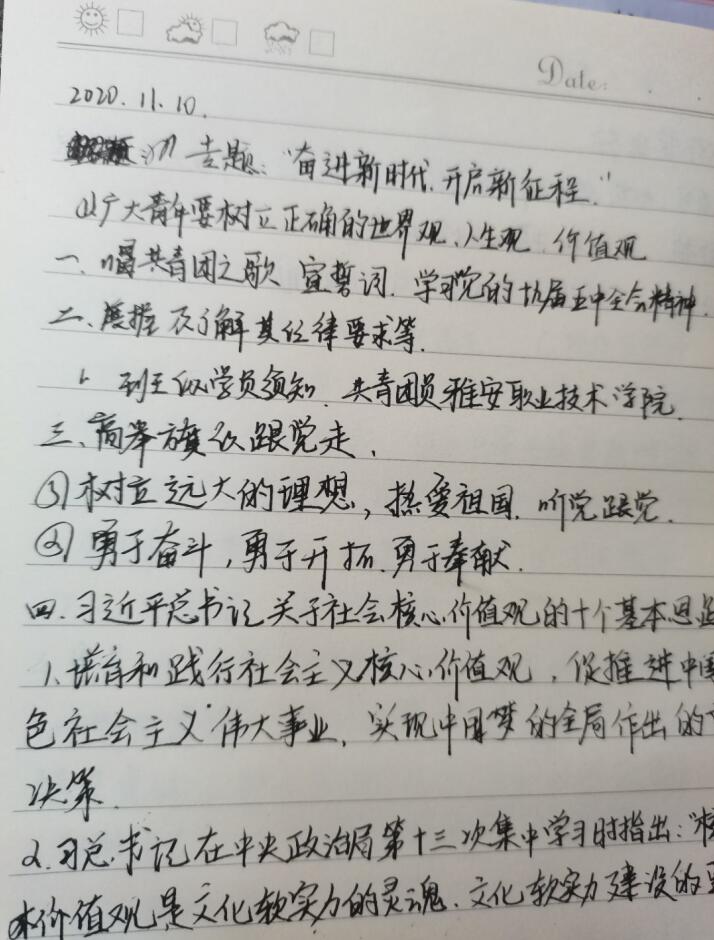 Date:
2020.11.10.
专题:"奋进新时代.开启新征程."
广大青年要树立正确的世界观、人生观.价值观
一、唱共青团之歌 宣誓词. 学习党的十九届五中全会精神.
二、 握及了解其纪律要求等.
学员须知. 共青团员雅安职业技术学院.
三、高举 跟党走.
树立远大的理想,热爱祖国.听党跟党.
② 勇于奋斗,勇于开拓.勇于奉献.
四.习近平总书记关于社会核心价值观的十个基本思
1、培育和践行社会主义核心价值观,促推进中国
色社会主义伟大事业,实现中国梦的全局作出的
决策.
2.习总书记在中央政治局第十三次集中学习时指出:"核
价值观是文化软实力的灵魂.文化软实力建设的